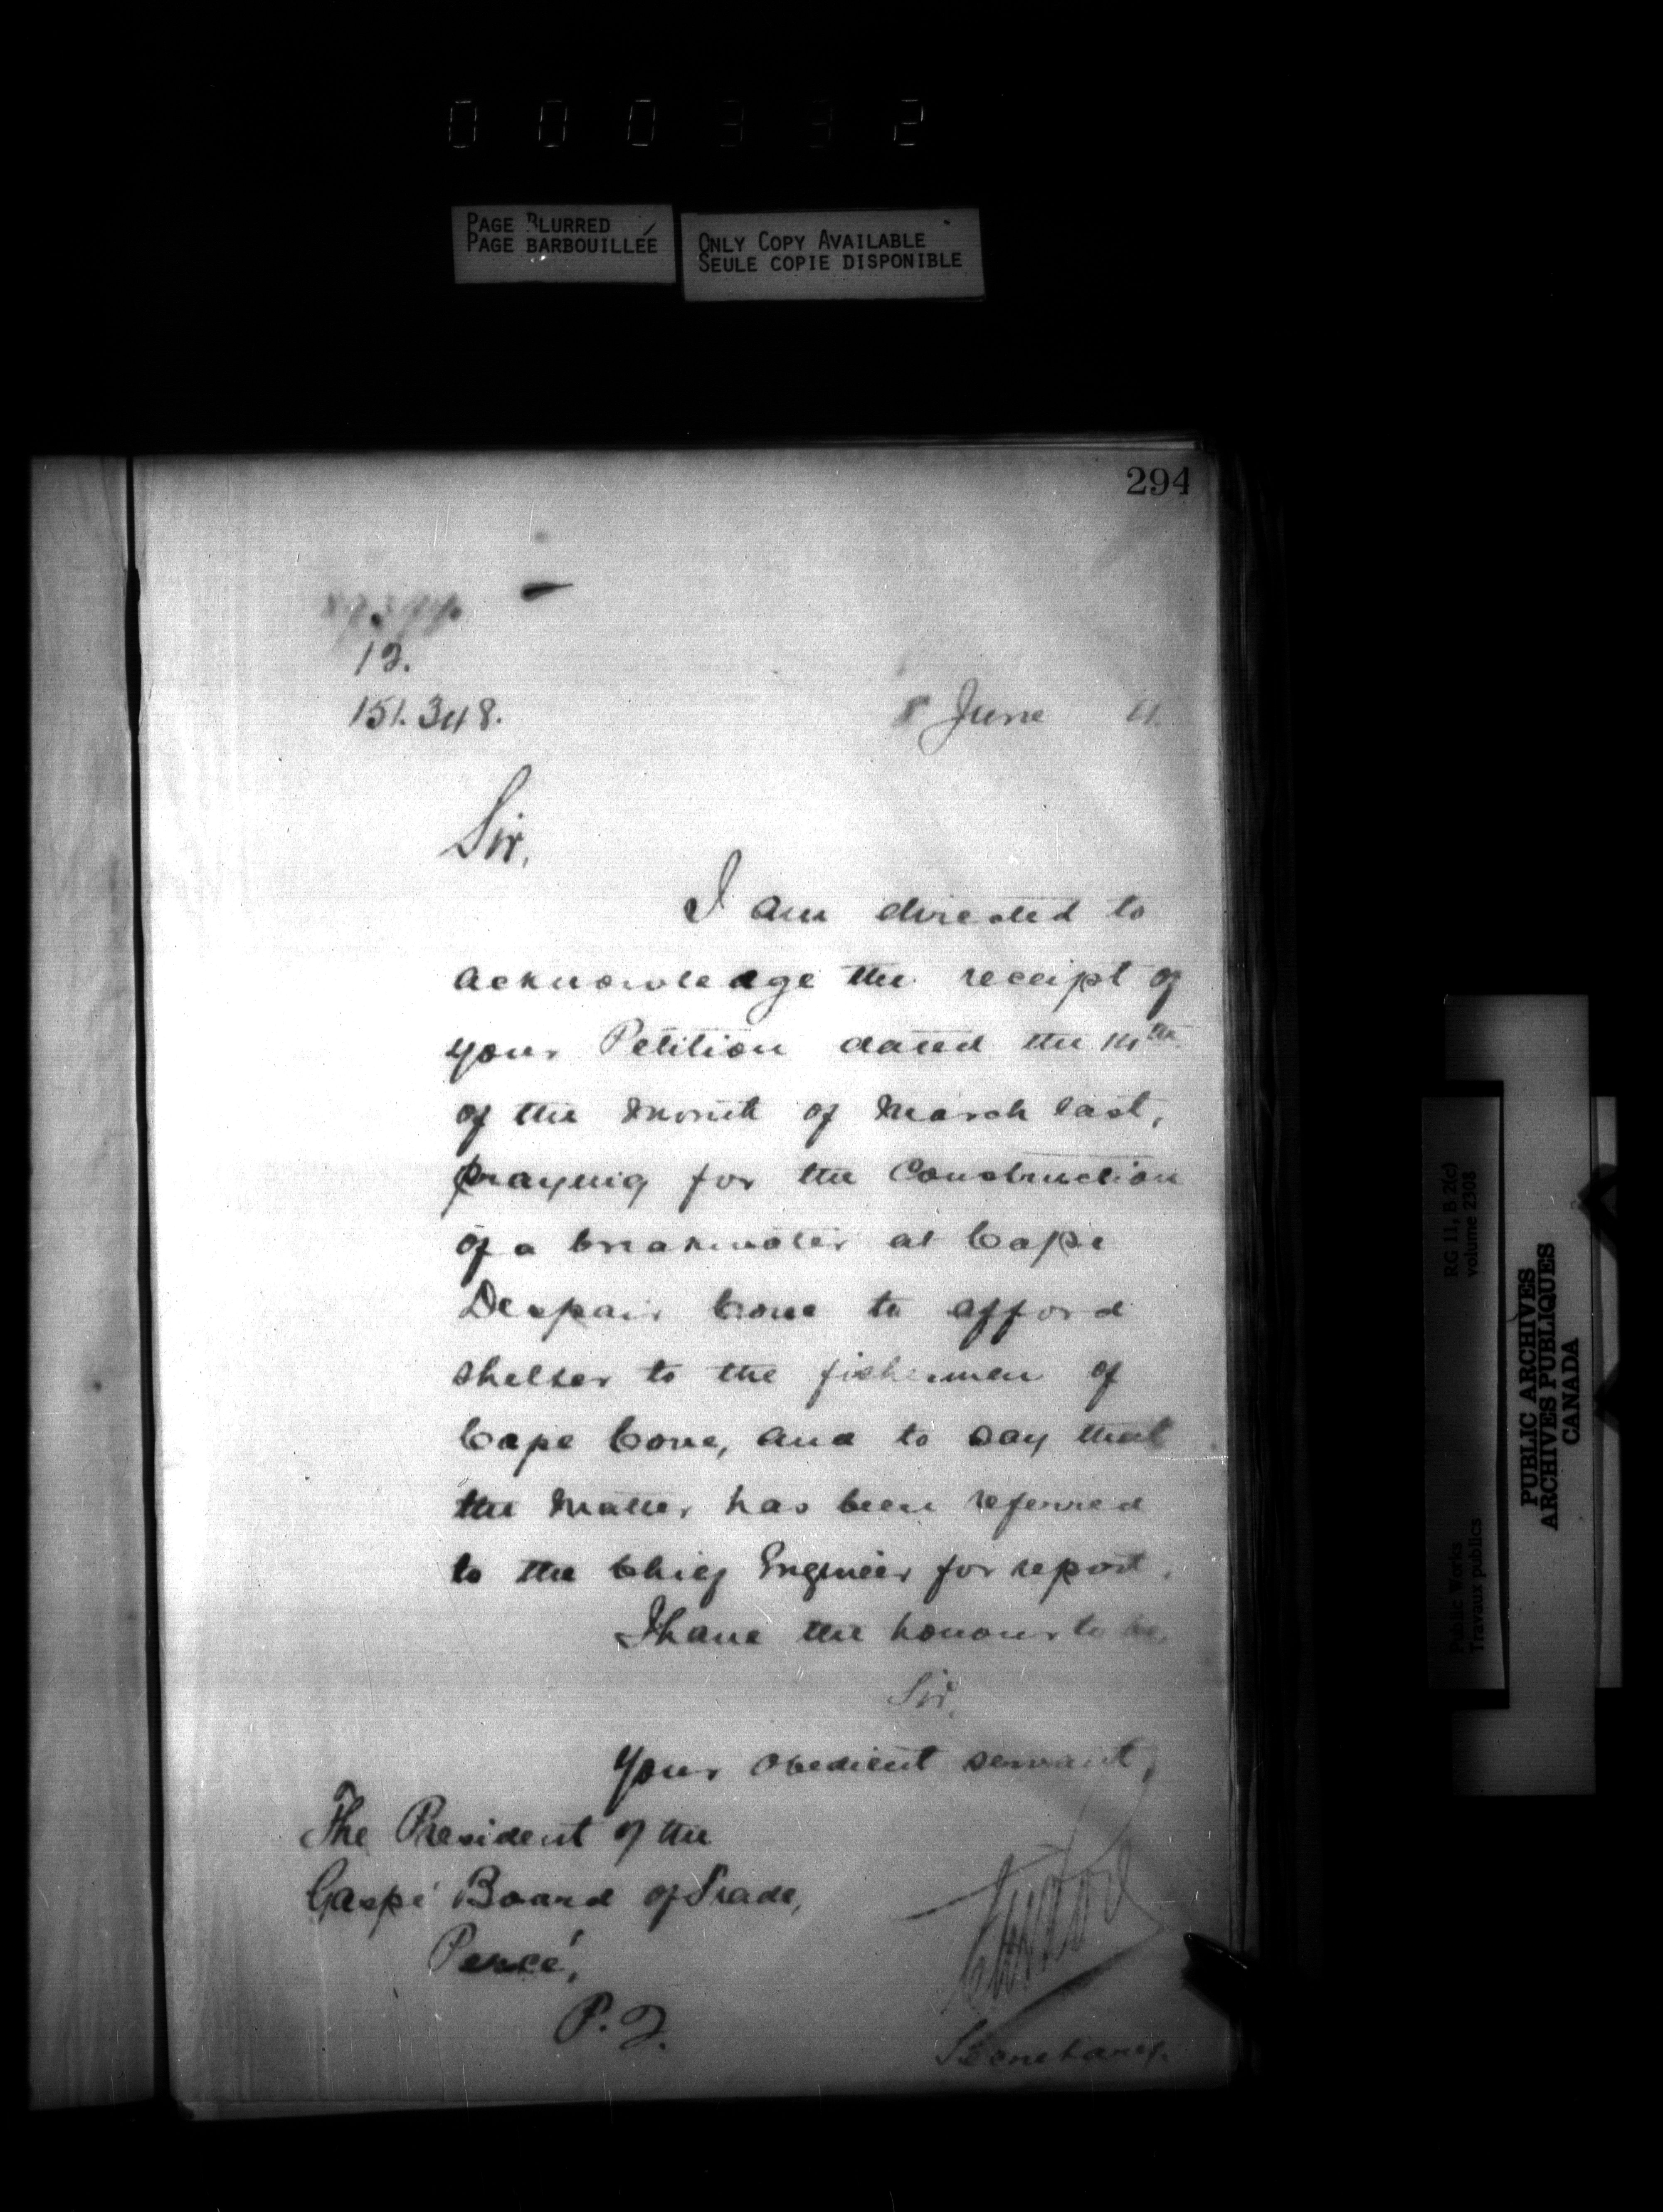 000332
PAGE BLURRED
PAGE BARBOUILLÉE
ONLY COPY AVAILABLE
SEULE COPIE DISPONIBLE
294
12.
151.348.
June
Sir,
I am directed to
acknowledge the receipt of
your Petition dated the 14th
of the month of March last,
praying for the Construction
of a breakwater at Cape
Despair Cove to afford
shelter to the fishermen of
Cape Cove, and to say that
the matter has been referred
to the Chief Engineer for report.
I have the honour to be,
Sir,
Your obedient servant,
The President of the
Gaspé Board of Trade,
Percé,
P.Q.
Secretary.
RG 11, B 2(c)
volume 2308
Public Works
Travaux publics
PUBLIC ARCHIVES
ARCHIVES PUBLIQUES
CANADA